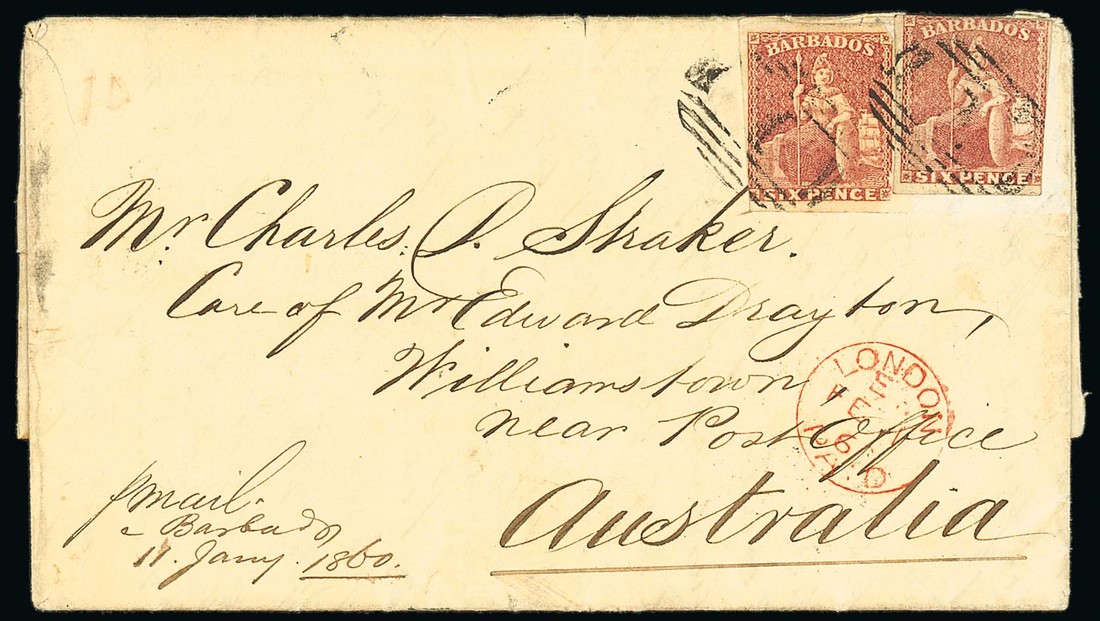 BARBADOS
SIX PENCE
BARBADOS
SIX PENCE
Mr Charles. P. Straker.
Care of Mr Edward Drayton,
Williamstown,
near Post Office
Australia
p mail
Barbados
11. Jany. 1860.
LONDON
E
FE
6